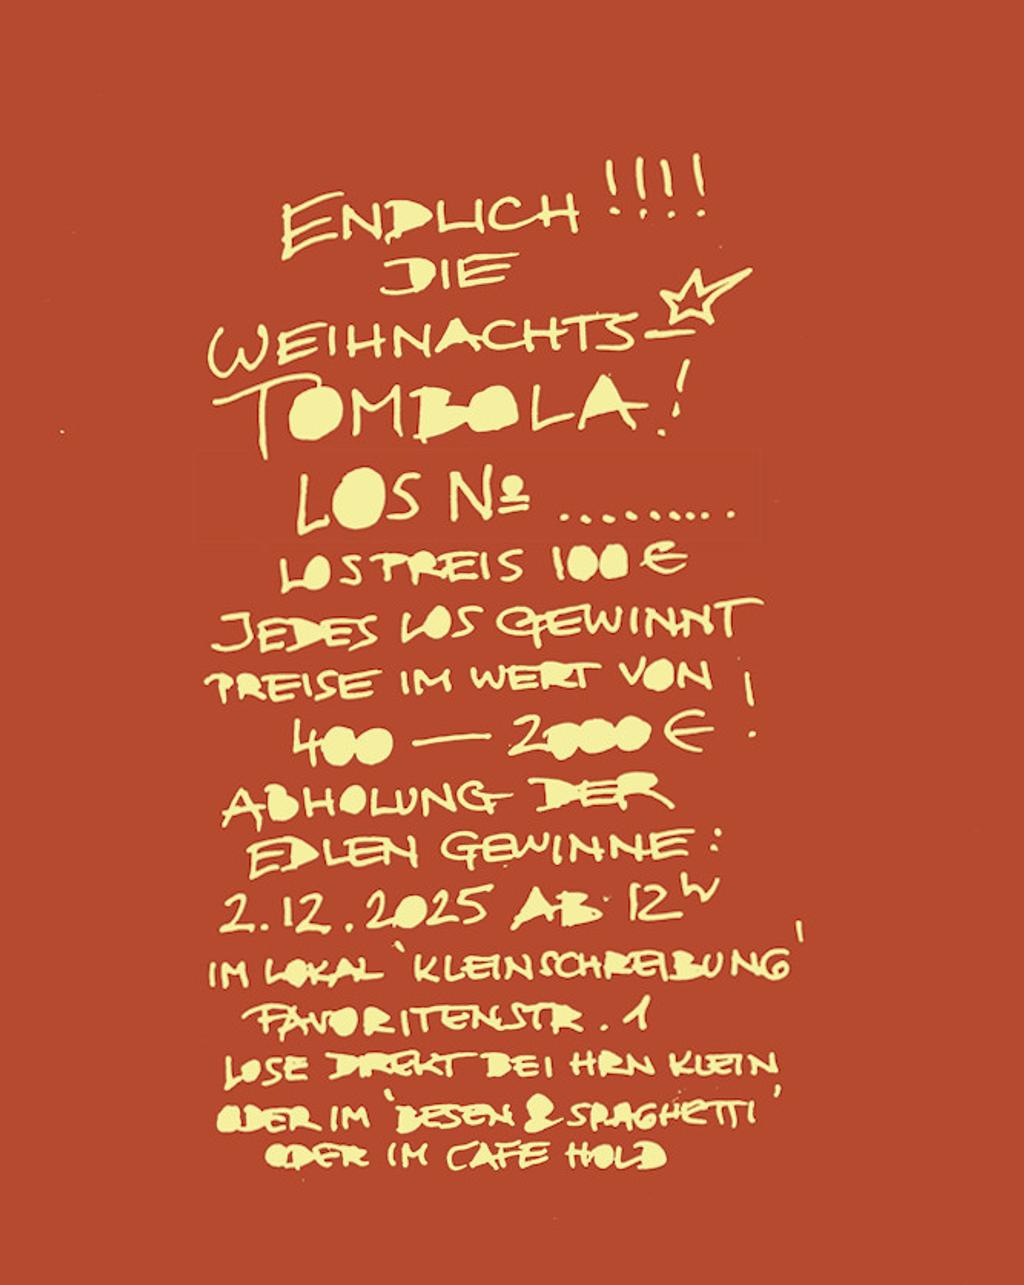 ENDLICH !!!!
DIE
WEIHNACHTS–
TOMBOLA!
LOS Nº .........
LOSPREIS 100 €
JEDES LOS GEWINNT
PREISE IM WERT VON
400 — 2000 € !
ABHOLUNG DER
EDLEN GEWINNE:
2.12.2025 AB 12h
IM LOKAL 'KLEINSCHREIBUNG'
FAVORITENSTR. 1
LOSE DIREKT BEI HRN KLEIN
ODER IM 'BESEN & SPAGHETTI'
ODER IM CAFE HOLD